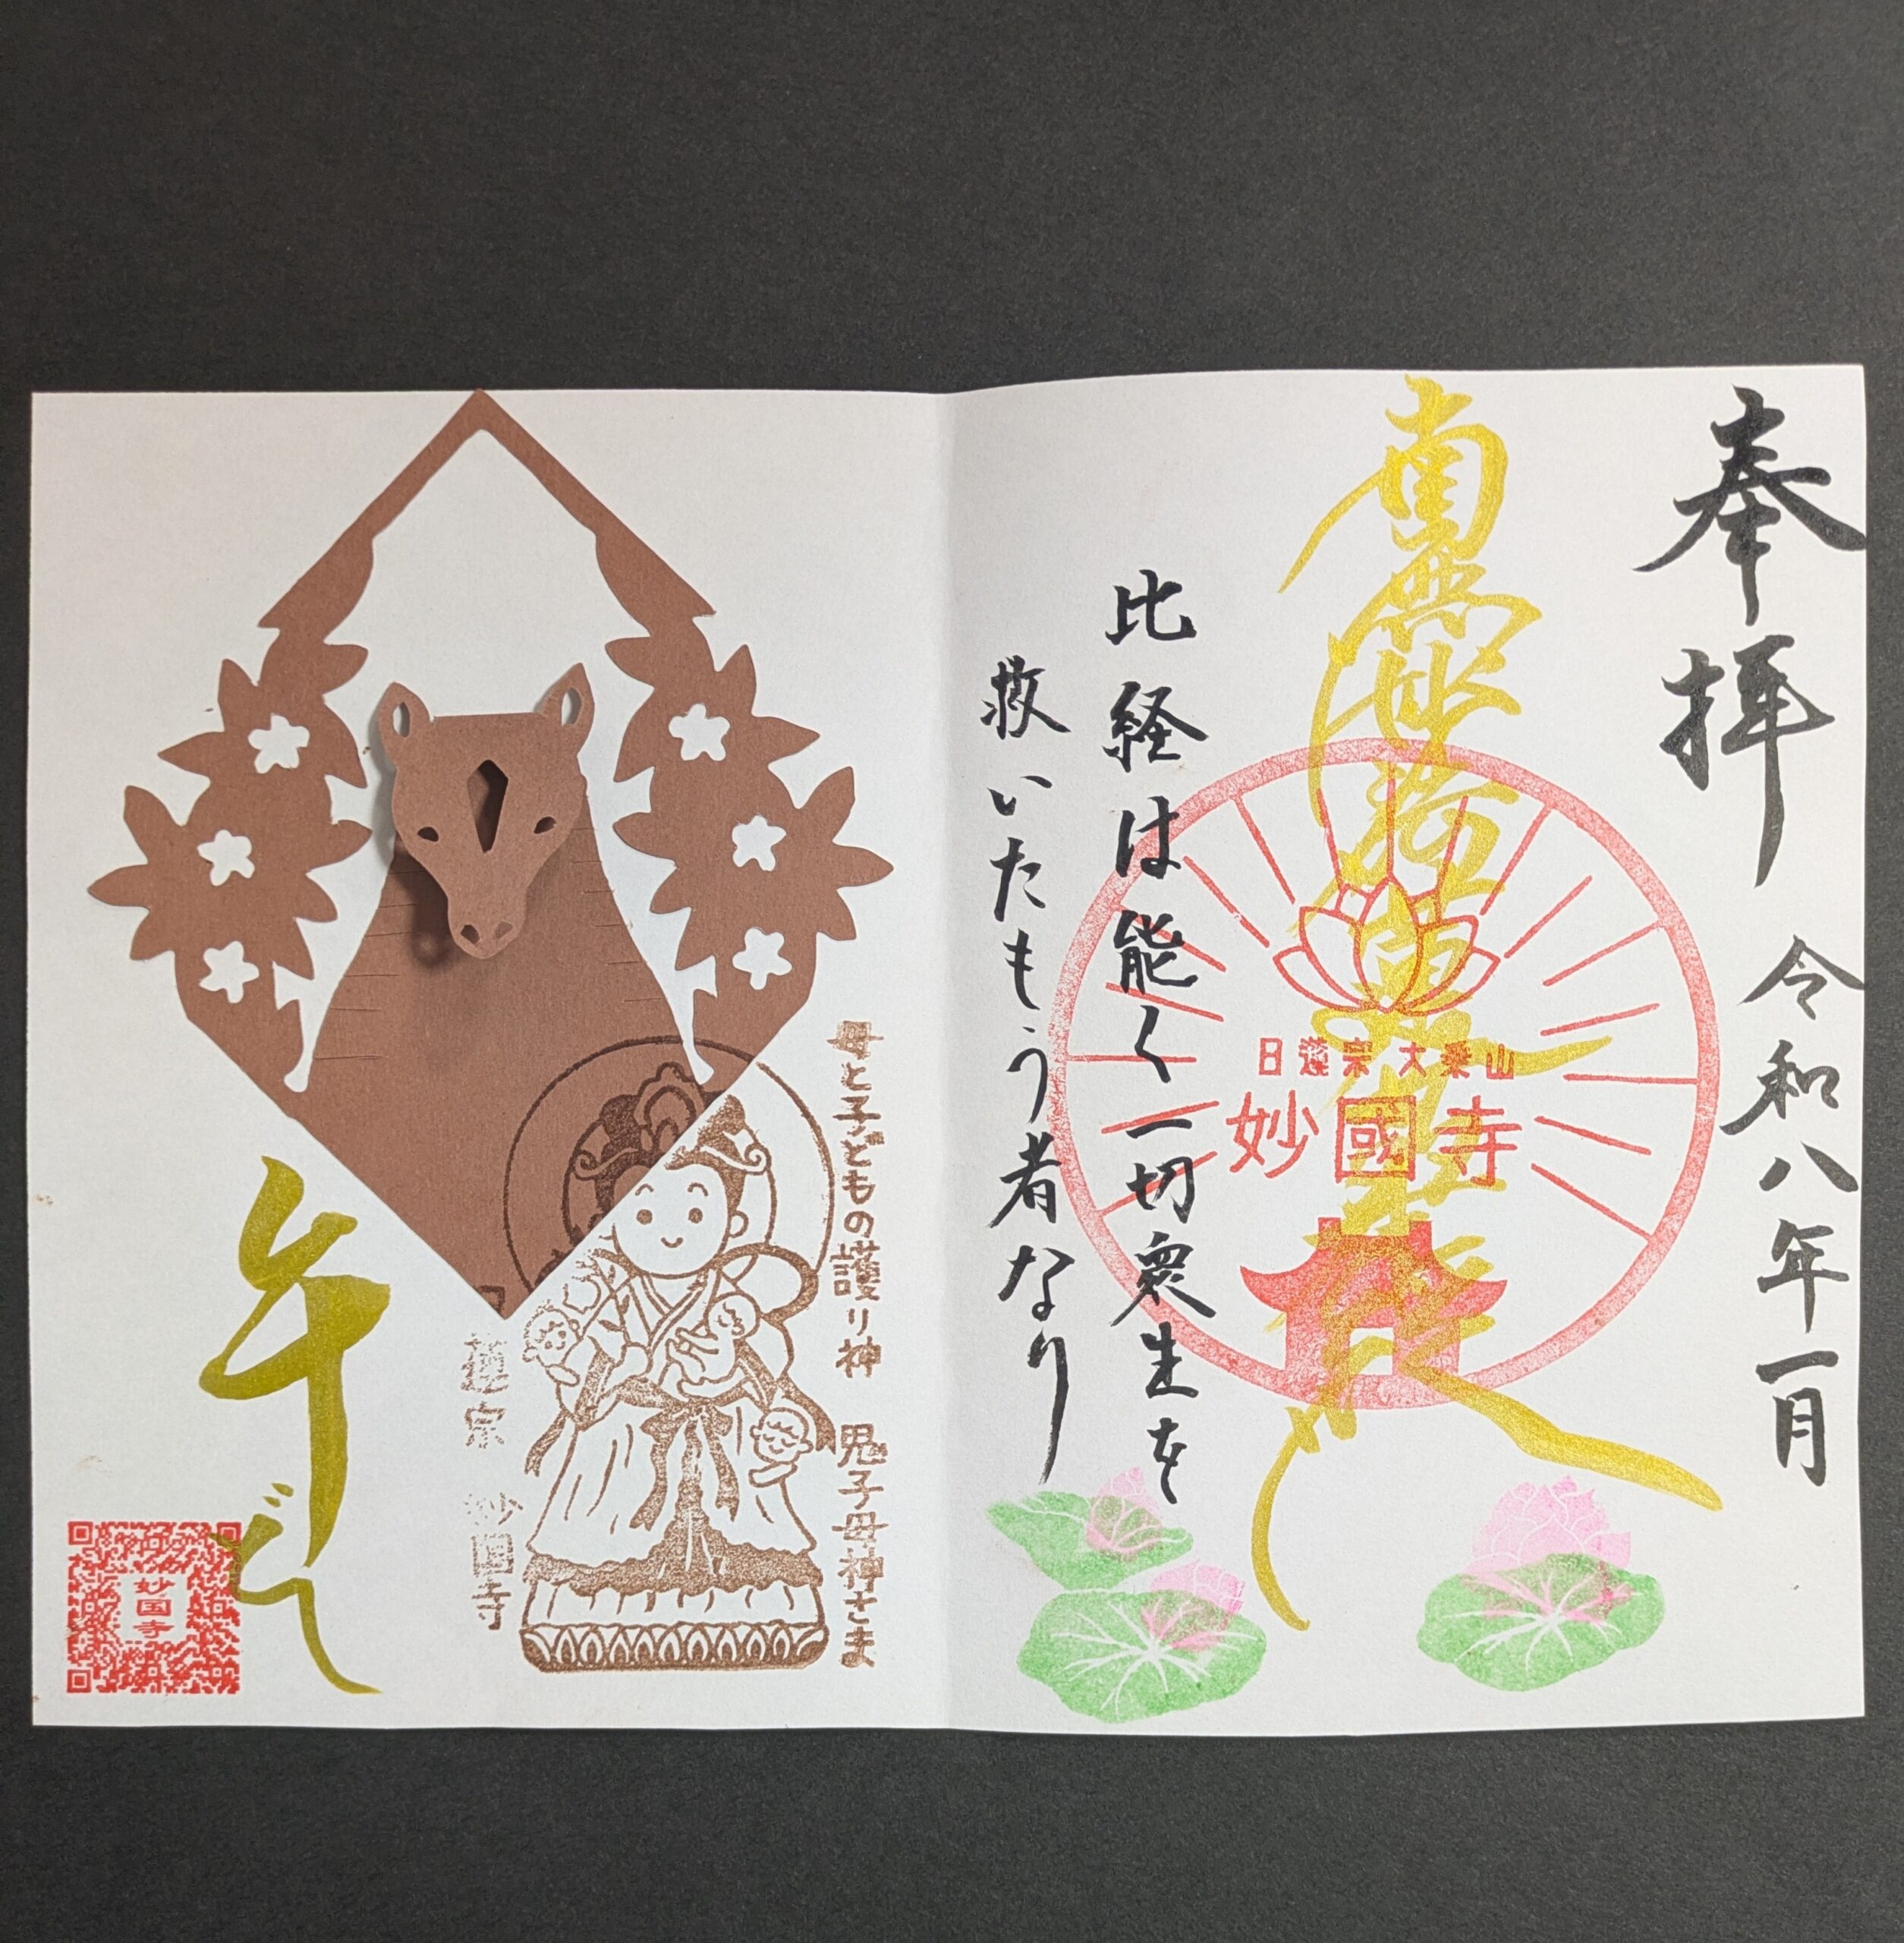 奉拝
令和八年一月
南無妙法蓮華経
日蓮宗 大乗山
妙國寺
比経は能く一切衆生を
救いたもう者なり
母と子どもの護り神 鬼子母神さま
蓮宗 妙国寺
午どし
妙国寺